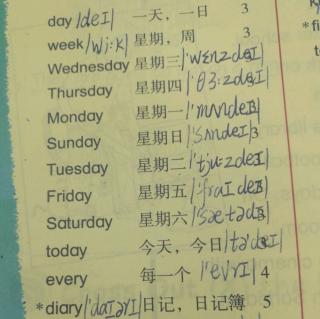 day /deI/ 一天，一日 3
week /wi:k/ 星期，周 3
Wednesday 星期三 /'wenzdeI/ 3
Thursday 星期四 /'θ3:zdeI/ 3
Monday 星期一 /'mʌndeI/ 3
Sunday 星期日 /'sʌndeI/ 3
Tuesday 星期二 /'tju:zdeI/ 3
Friday 星期五 /'fraIdeI/ 3
Saturday 星期六 /'sætədI/ 3
today 今天，今日 /tə'deI/ 3
every 每一个 /'evrI/ 4
*diary /'daIərI/ 日记，日记簿 5